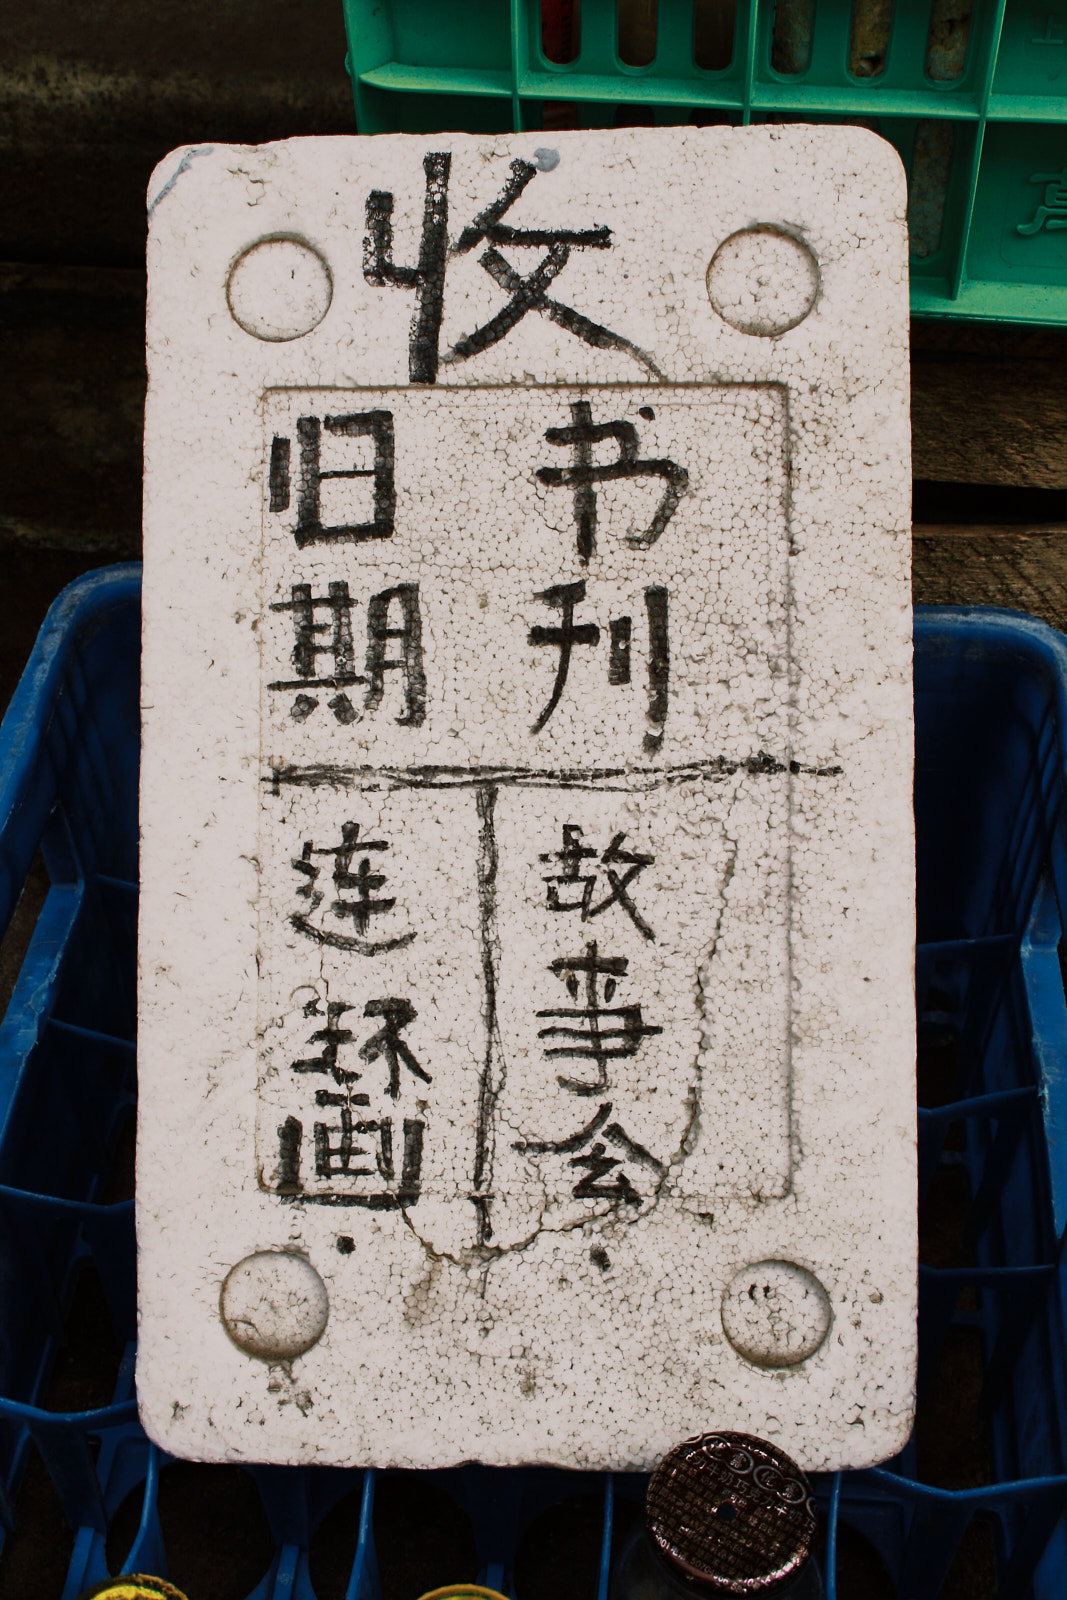 收
旧书
期刊
连环画
故事会